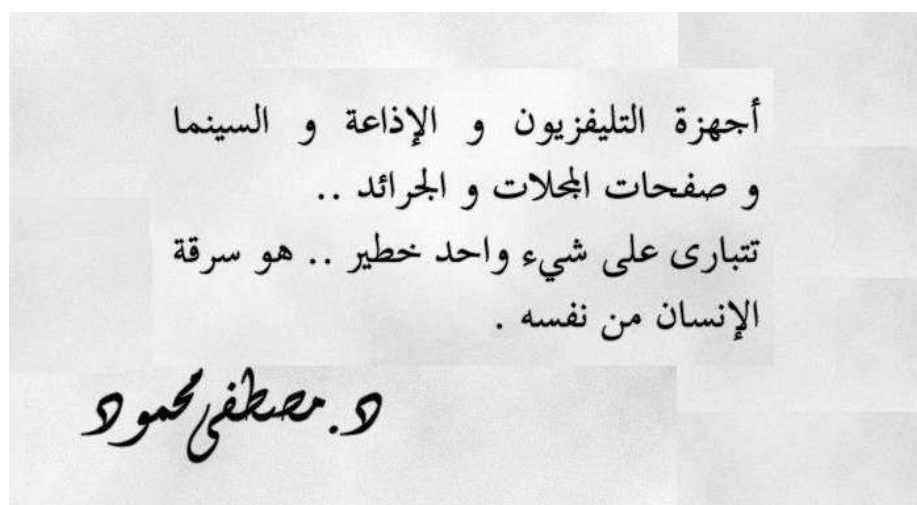 أجهزة التليفزيون و الإذاعة و السينما
و صفحات المجلات و الجرائد ..
تتبارى على شيء واحد خطير .. هو سرقة
الإنسان من نفسه .
د. مصطفى محمود